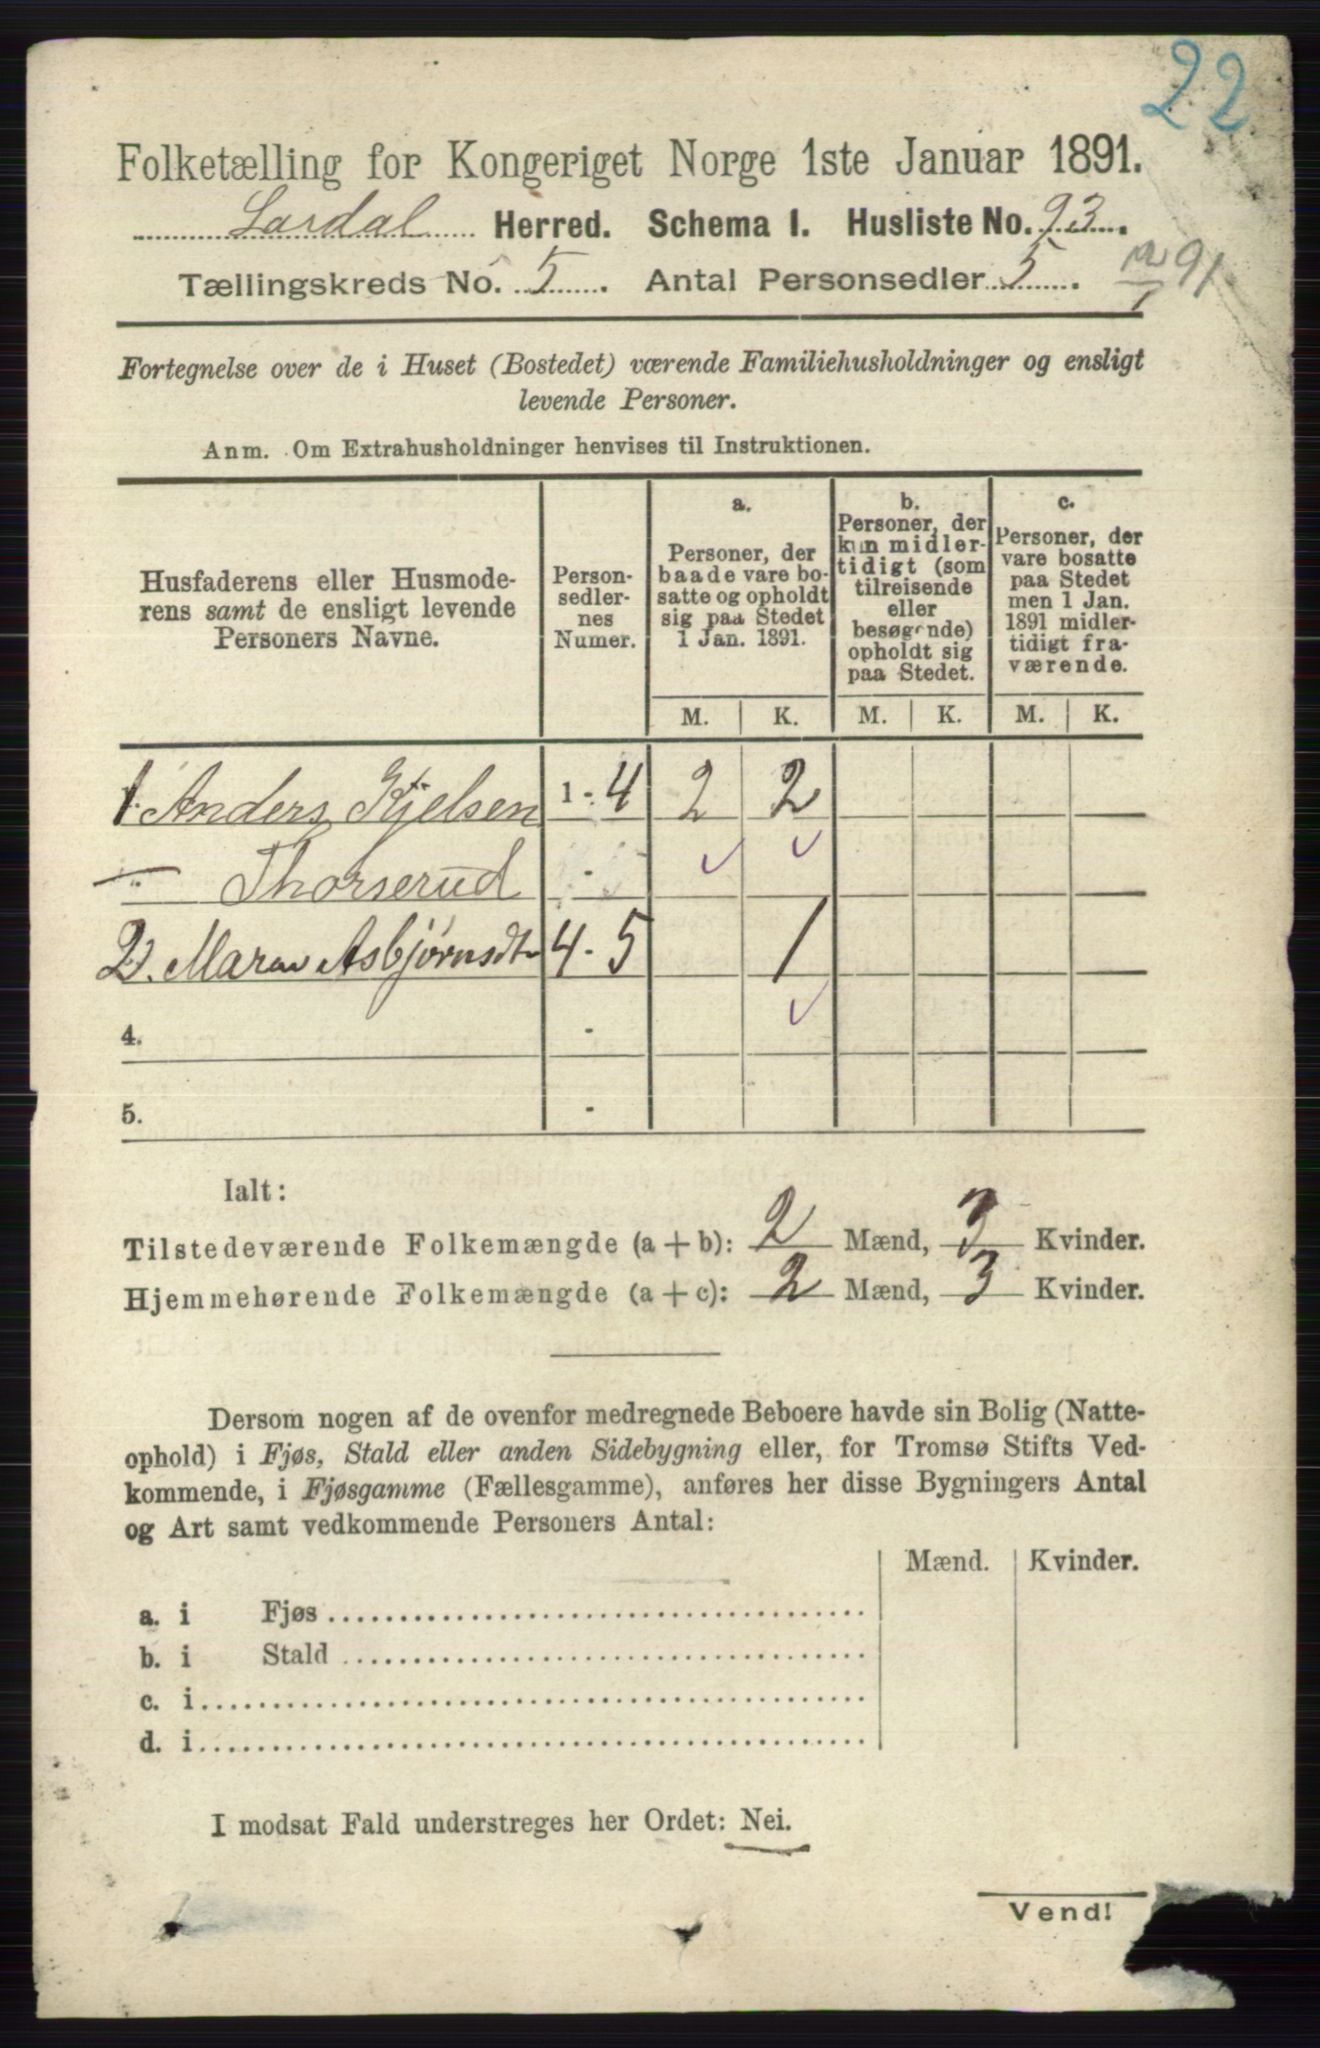 22
Folketælling for Kongeriget Norge 1ste Januar 1891.
Lardal Herred. Schema I. Husliste No. 93.
Tællingskreds No. 5. Antal Personsedler 5. 91
Fortegnelse over de i Huset (Bostedet) værende Familiehusholdninger og ensligt
levende Personer.
Anm. Om Extrahusholdninger henvises til Instruktionen.
Husfaderens eller Husmode-
rens samt de ensligt levende
Personers Navne.
Person-
sedler-
nes
Numer.
a.
Personer, der
baade vare bo-
satte og opholdt
sig paa Stedet
1 Jan. 1891.
b.
Personer, der
kun midler-
tidigt (som
tilreisende
eller
besøgende)
opholdt sig
paa Stedet.
c.
Personer, der
vare bosatte
paa Stedet
men 1 Jan.
1891 midler-
tidigt fra-
værende.
M. K. M. K. M. K.
1. Anders Kjelsen 1 - 4 2 2
Thorserud -
2. Maren Asbjørnsdt 4 - 5 1
4. -
5. -
Ialt:
Tilstedeværende Folkemængde (a + b): 2 Mænd, 3 Kvinder.
Hjemmehørende Folkemængde (a + c): 2 Mænd, 3 Kvinder.
Dersom nogen af de ovenfor medregnede Beboere havde sin Bolig (Natte-
ophold) i Fjøs, Stald eller anden Sidebygning eller, for Tromsø Stifts Ved-
kommende, i Fjøsgamme (Fællesgamme), anføres her disse Bygningers Antal
og Art samt vedkommende Personers Antal:
Mænd. Kvinder.
a. i Fjøs
b. i Stald
c. i
d. i
I modsat Fald understreges her Ordet: Nei.
Vend!